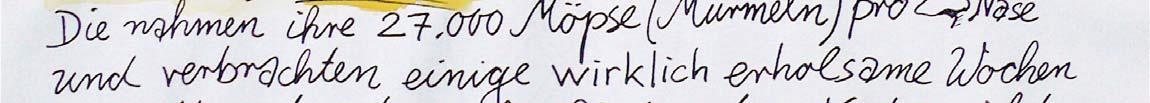 Die nahmen ihre 27.000 Möpse (Murmeln) pro Nase
und verbrachten einige wirklich erholsame Wochen